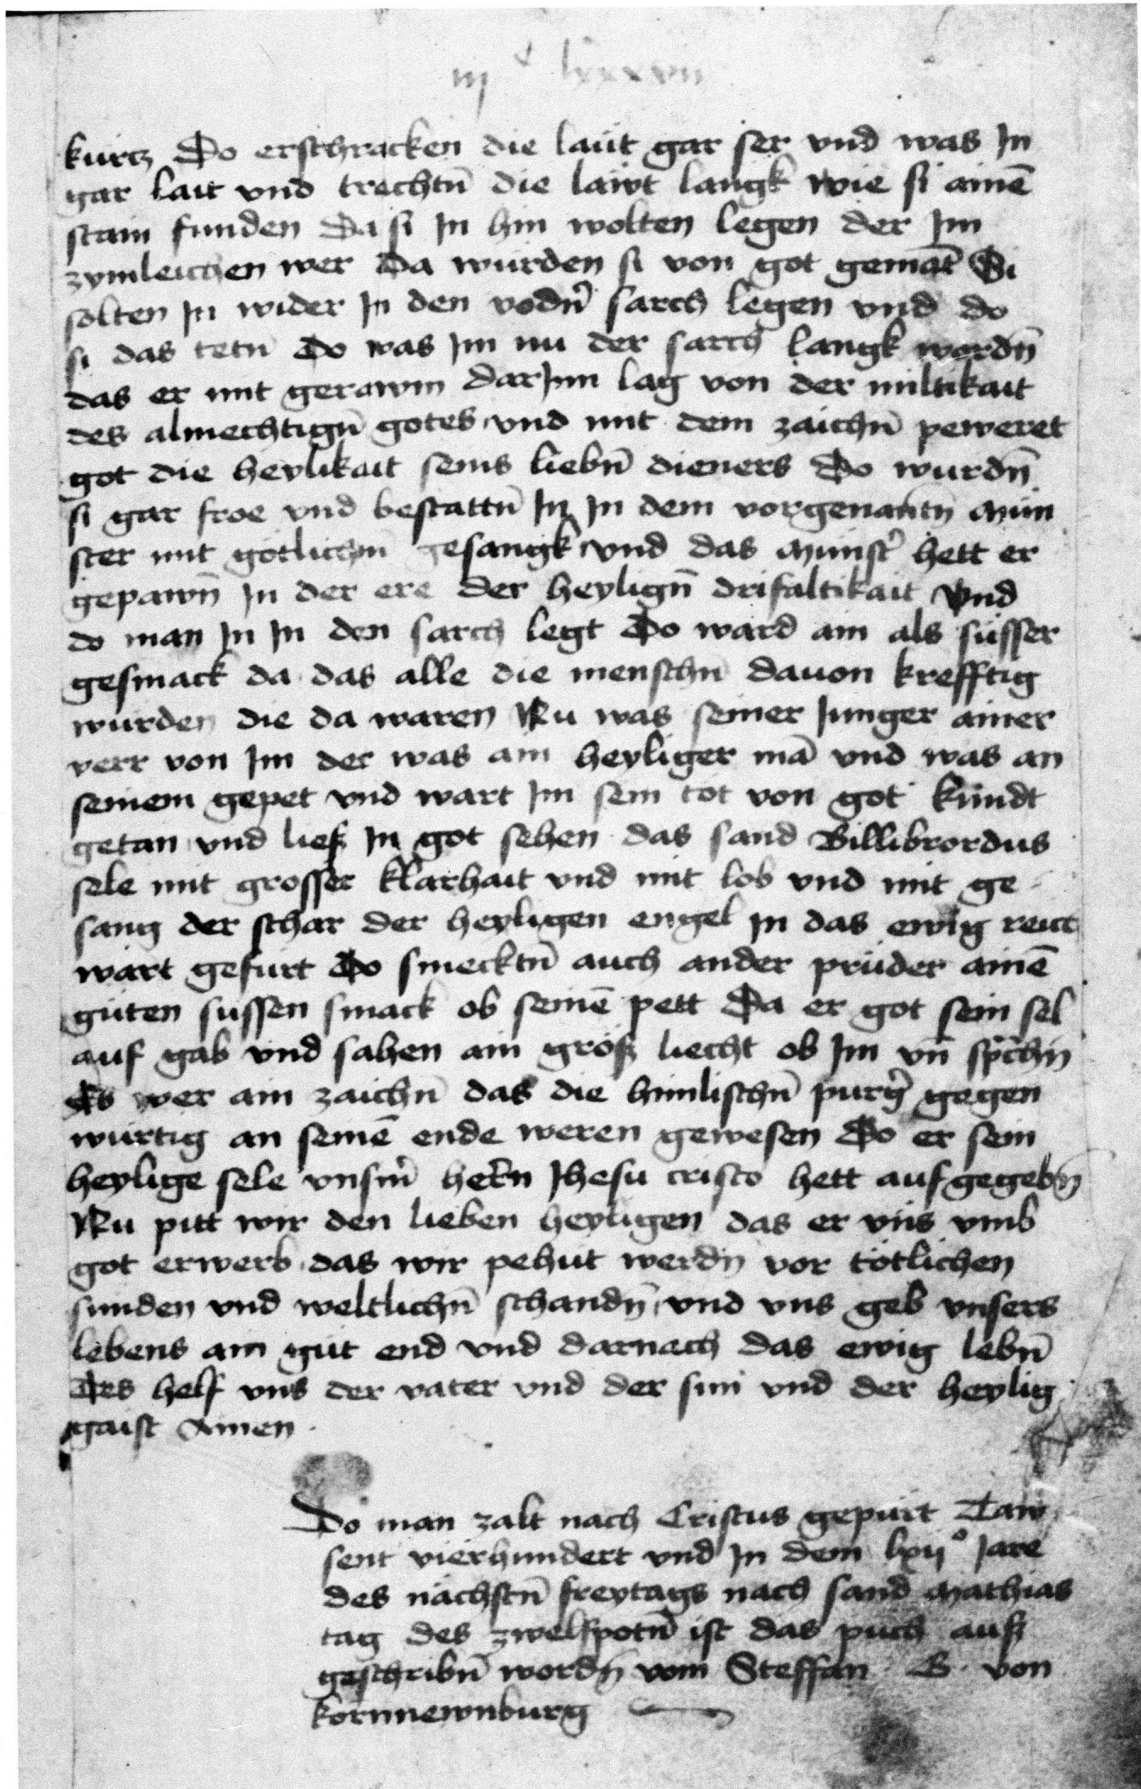 iij c lxxxvii
kurcz Do erschracken die laüt gar ser vnd was In
gar lait vnd trechtn̄ die läwt langk wie si ainē
stain funden Da si In hin wolten legen der Im
zymleichen wer Da wurden si von got gemāt Si
solten In wider In den vodn̄ sarch legen vnd do
si das tetn̄ Do was Im nu der sarch langk wordn̄
das er mit gerawm darInn lag von der miltikait
des almechtign̄ gotes vnd mit dem zaichn̄ peweret
got die heylikait seins liebn̄ dieners Do wurdn̄
si gar froe vnd bestattn̄ In In dem vorgenantn̄ mün
ster mit götlichm̄ gesangk vnd das münst̄ hett er
gepawn̄ In der ere der heylign̄ drifaltikait Vnd
do man In In den sarch legt Do ward ain als süsser
gesmack da das alle die menschn̄ dauon krefftig
wurden die da waren Nu was seiner Iunger ainer
verr von Im der was ain heyliger mā vnd was an
seinem gepet vnd wart Im sein tot von got kündt
getan vnd liess In got sehen das sand Billibrordus
sele mit grosser klarhait vnd mit lob vnd mit ge
sang der schar der heyligen engel In das ewig reich
wart gefürt Do smecktn̄ auch ander prüder ainē
güten süssen smack ob seinē pett Da er got sein sel
auf gab vnd sahen ain gröss liecht ob Im vn̄ sp̄chn̄
Es wer ain zaichn̄ das die himlischn̄ purḡ gegen
würtig an seinē ende weren gewesen Do er sein
heylige sele vnsm̄ her̄n Ihesu cristo hett auf gegebn̄
Nu pitt wir den lieben heyligen das er vns vmb
got erwerb das wir pehut werdn̄ vor tötlichen
sünden vnd weltlichn̄ schandn̄ vnd vns geb vnsers
lebens ain güt end vnd darnach das ewig lebn̄
Des helf vns der vater vnd der sun vnd der heylig
gaist Amen
Do man zalt nach Cristus gepürt Taw
sent vierhundert vnd In dem lxij° Iare
des nächstn̄ freytags nach sand Mathias
tag des zwelfpotn̄ ist das püch auß
geschribn̄ wordn̄ vom Steffan B von
kornnewnburg